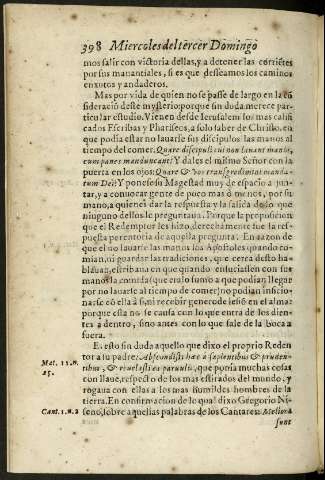 398 Miercoles del tercer Domingo
mos salir con victoria dellas, y a detener las corriẽtes
por sus manantiales, si es que desseamos los caminos
enxutos y andaderos.
Mas por vida de quien no se passe de largo en la cõ
sideraciõ deste mysterio: porque sin duda merece par-
ticular estudio. Vienen desde Ierusalem los mas califi
cados Escribas y Phariseos, a solo saber de Christo, en
que podia estar no lauarse sus discipulos las manos al
tiempo del comer. Quare discipuli tui non lauant manus,
cum panem manducant? Y dales el mismo Señor con la
puerta en los ojos: Quare & vos transgredimini manda-
tum Dei? Y ponese su Magestad muy de espacio a jun-
tar, y a conuocar gente de poco mas ò menos, por su
mano, a quienes dar la respuesta y la salida de lo que
ninguno dellos le preguntaua. Porque la proposicion
que el Redemptor les hizo, derechamente fue la res-
puesta perentoria de aquella pregunta. En razon de
que el no lauarse las manos los Apostoles quando co-
mian, ni guardar las tradiciones, que cerca desto ha-
blauan, estribaua en que quando ensuciassen con sus
manos la comida (que era lo sumo a que podian llegar
por no lauarse al tiempo de comer) no podian inficio-
narse cõ ella a si, ni recebir genero de lesiõ en el alma:
porque esta no se causa con lo que entra de los dien-
tes a dentro, sino antes con lo que sale de la boca a
fuera.
Es esto sin duda aquello que dixo el proprio Reden
tor a su padre: Abscondisti hæc à sapientibus & pruden-
Mat. 11. n.
tibus, & reuelasti ea paruulis, que ponia muchas cosas
25.
con llaue, respecto de los mas estirados del mundo, y
rogaua con ellas a los mas humildes hombres de la
tierra. En confirmacion de lo qual dixo Gregorio Ni-
Cant. 1. n. 2
seno, sobre aquellas palabras de los Cantares: Meliora
sunt